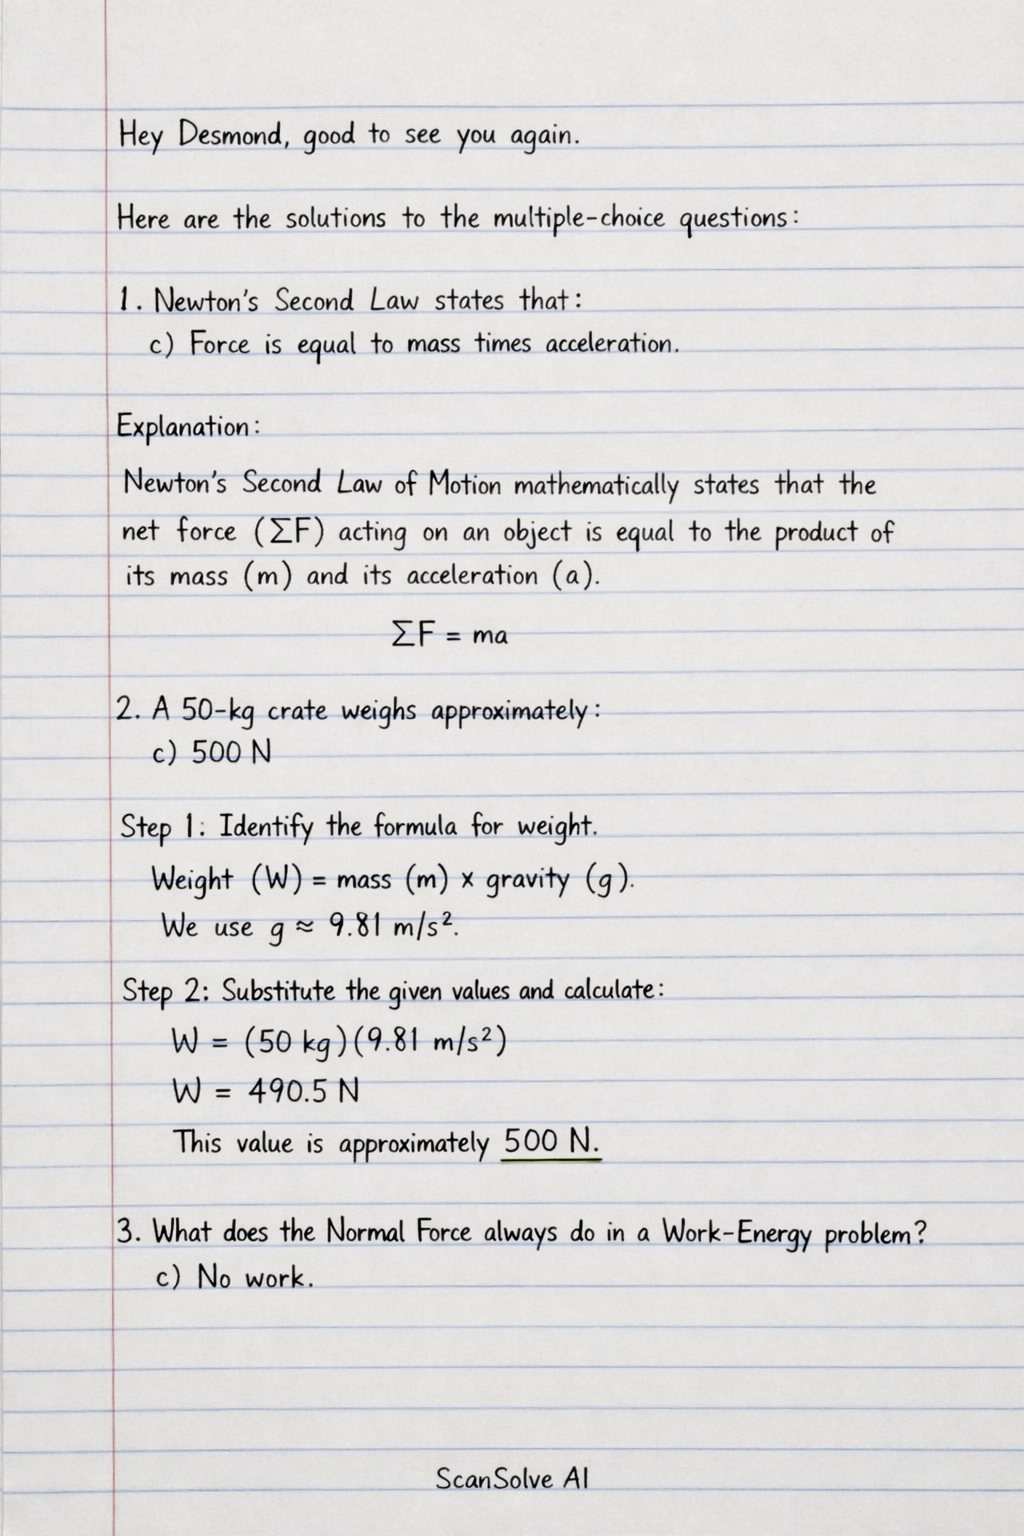 Hey Desmond, good to see you again.
Here are the solutions to the multiple-choice questions:
1. Newton's Second Law states that:
c) Force is equal to mass times acceleration.
Explanation:
Newton's Second Law of Motion mathematically states that the
net force (ΣF) acting on an object is equal to the product of
its mass (m) and its acceleration (a).
ΣF = ma
2. A 50-kg crate weighs approximately:
c) 500 N
Step 1: Identify the formula for weight.
Weight (W) = mass (m) x gravity (g).
We use g ≈ 9.81 m/s².
Step 2: Substitute the given values and calculate:
W = (50 kg)(9.81 m/s²)
W = 490.5 N
This value is approximately 500 N.
3. What does the Normal Force always do in a Work-Energy problem?
c) No work.
ScanSolve AI